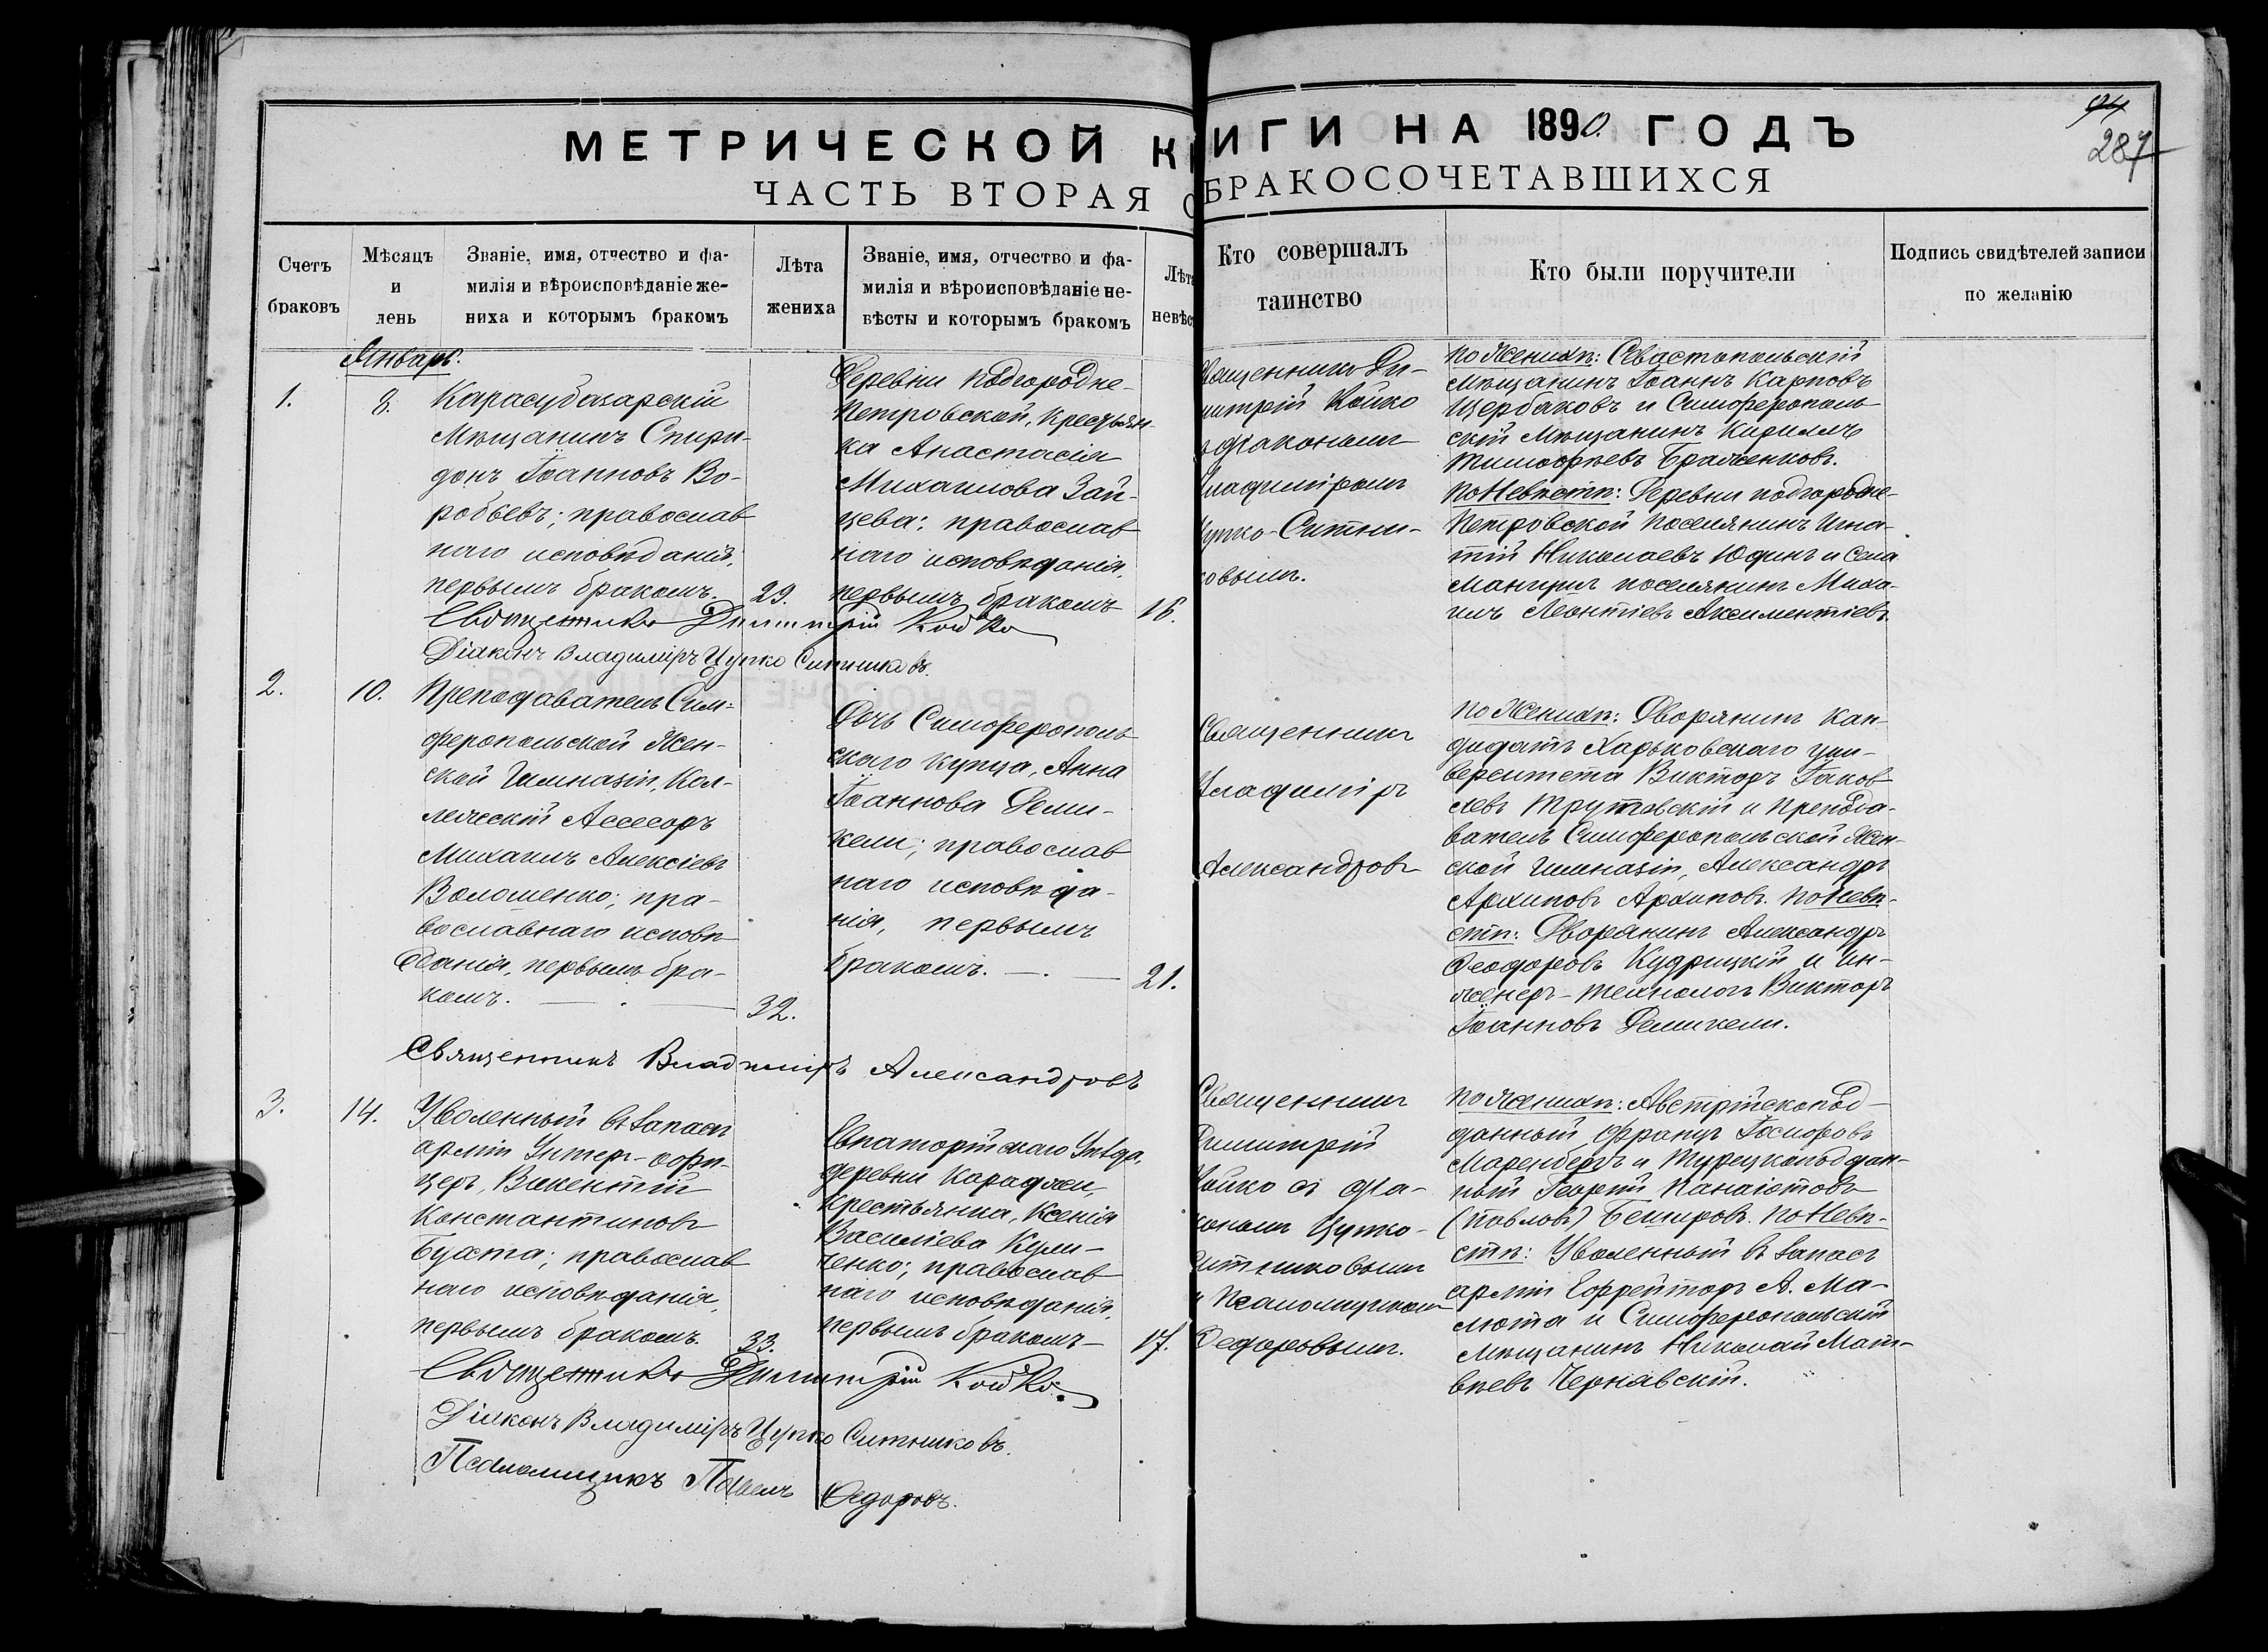 МЕТРИЧЕСКОЙ КНИГИ НА 1890. ГОДЪ
ЧАСТЬ ВТОРАЯ О БРАКОСОЧЕТАВШИХСЯ
287
Счетъ
браковъ
Мѣсяцъ
и
день
Званіе, имя, отчество и фа-
милія и вѣроисповѣданіе же-
ниха и которымъ бракомъ
Лѣта
жениха
Званіе, имя, отчество и фа-
милія и вѣроисповѣданіе не-
вѣсты и которымъ бракомъ
Лѣта
невѣс
Кто совершалъ
таинство
Кто были поручители
Подпись свидѣтелей записи
по желанію
Январь.
1.
8.
Карасубазарскій
Мѣщанинъ Спири-
донъ Іоанновъ Во-
робьевъ; православ
наго исповѣданія,
первымъ бракомъ.
29.
Деревни Подгородне-
Петровской, крестьян-
ка Анастасія
Михаилова Зай-
цева; православ
наго исповѣданія,
первымъ бракомъ
18.
Священникъ Ди-
митрій Койко
съ діакономъ
Владиміромъ
Цупко-Ситни-
ковымъ.
По Женихѣ: Севастопольскій
Мѣщанинъ Іоаннъ Карповъ
Щербаковъ и Симферополь-
скій Мѣщанинъ Кириллъ
Тимофѣевъ Браженковъ.
По Невѣстѣ: Деревни Подгородне-
Петровской поселянинъ Игна-
тій Николаевъ Юдинъ и села
Мангуш поселянинъ Миха-
илъ Леонтіевъ Аксиментіевъ.
Священникъ Димитрій Койко
Діаконъ Владиміръ Цупко Ситниковъ.
2.
10.
Преподаватель Сим-
феропольской Жен-
ской Гимназіи, Кол-
лежскій Ассесоръ
Михаилъ Алексіевъ
Волошенко; пра-
вославнаго исповѣ-
данія, первымъ бра-
комъ.
32.
Дочь Симферополь
скаго купца, Анна
Іоаннова Деми-
кели; православ
наго исповѣда-
нія, первымъ
бракомъ.
21.
Священникъ
Владиміръ
Александровъ
По Женихѣ: Дворянинъ Кан-
дидатъ Харьковскаго уни-
верситета Викторъ Іаков
левъ Трутовскій и Препода-
ватель Симферопольской Жен-
ской Гимназіи, Александръ
Архиповъ Архиповъ. По Невѣ-
стѣ: Дворянинъ Александръ
Феодоровъ Кудрицкій и ин-
женеръ-технологъ Викторъ
Іоанновъ Демикели.
Священникъ Владиміръ Александровъ
3.
14.
Уволенный въ запасъ
арміи Унтеръ-офи-
церъ, Викентій
Константиновъ
Бухта; православ
наго исповѣданія,
первымъ бракомъ.
33.
Евпаторійскаго Уѣзда,
деревни Караджи,
крестьянка, Ксенія
Василіева Кули-
ченко; православ
наго исповѣданія,
первымъ бракомъ
17.
Священникъ
Димитрій
Койко съ діа-
кономъ Цупко-
Ситниковымъ
и Псаломщикомъ
Федоровымъ.
По Женихѣ: Австрійскопод-
данный Францъ Іосифовъ
Маренбергъ и Турецкоподдан-
ный Георгій Панаіотовъ
(Павловъ) Бемировъ. По Невѣ-
стѣ: Уволенный въ запасъ
арміи Ефрейторъ А. Ма-
люта и Симферопольскій
Мѣщанинъ Николай Мат-
вѣевъ Чернявскій.
Священникъ Димитрій Койко.
Діаконъ Владиміръ Цупко Ситниковъ.
Псаломщикъ Павелъ Федоровъ.